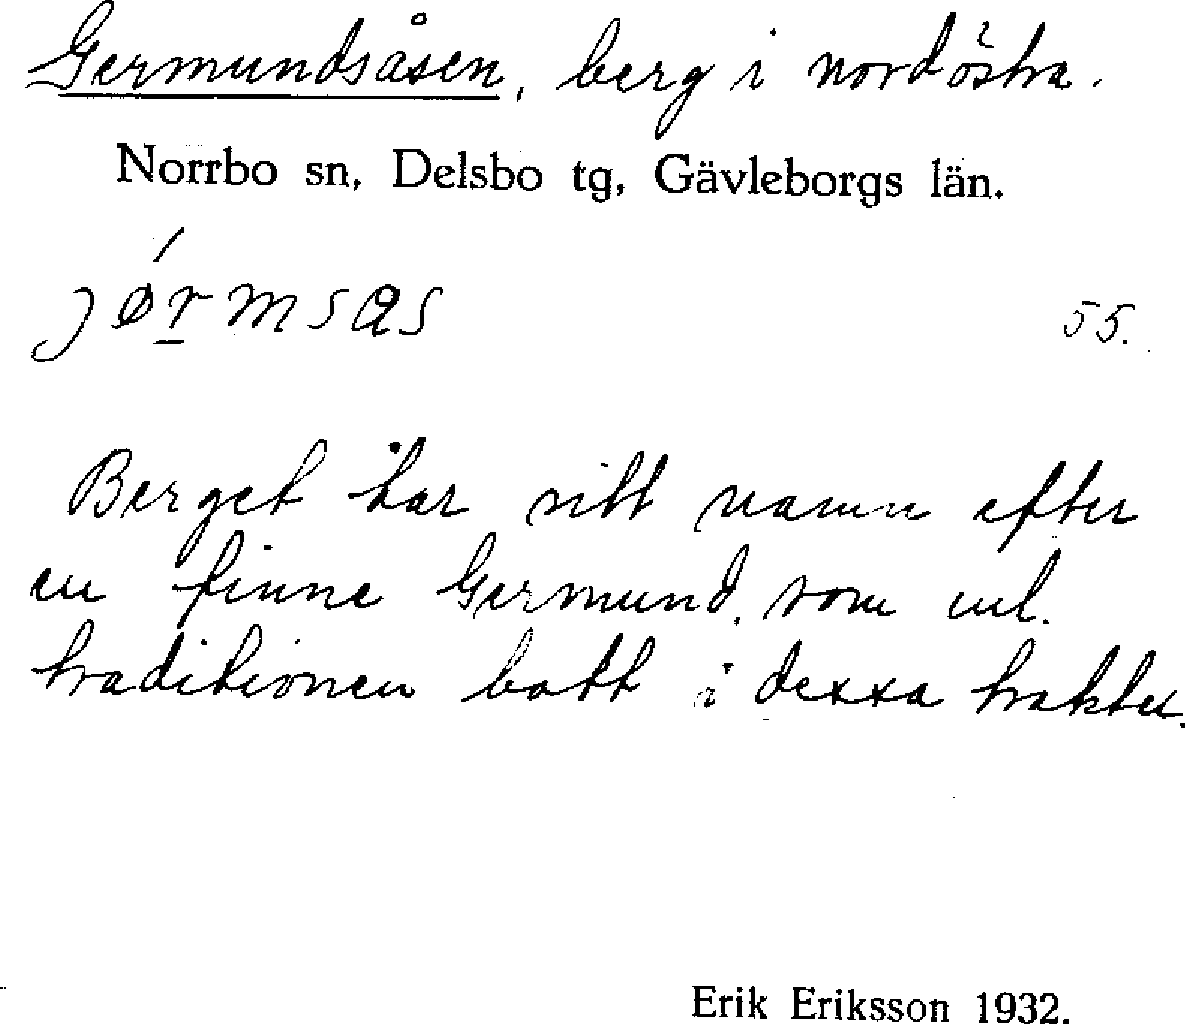 Germundsåsen, berg i nordöstra.
Norrbo sn, Delsbo tg, Gävleborgs län.
jørmsas 55.
Berget har sitt namn efter
en finne Germund, som enl.
traditionen bott i dessa trakter.
Erik Eriksson 1932.